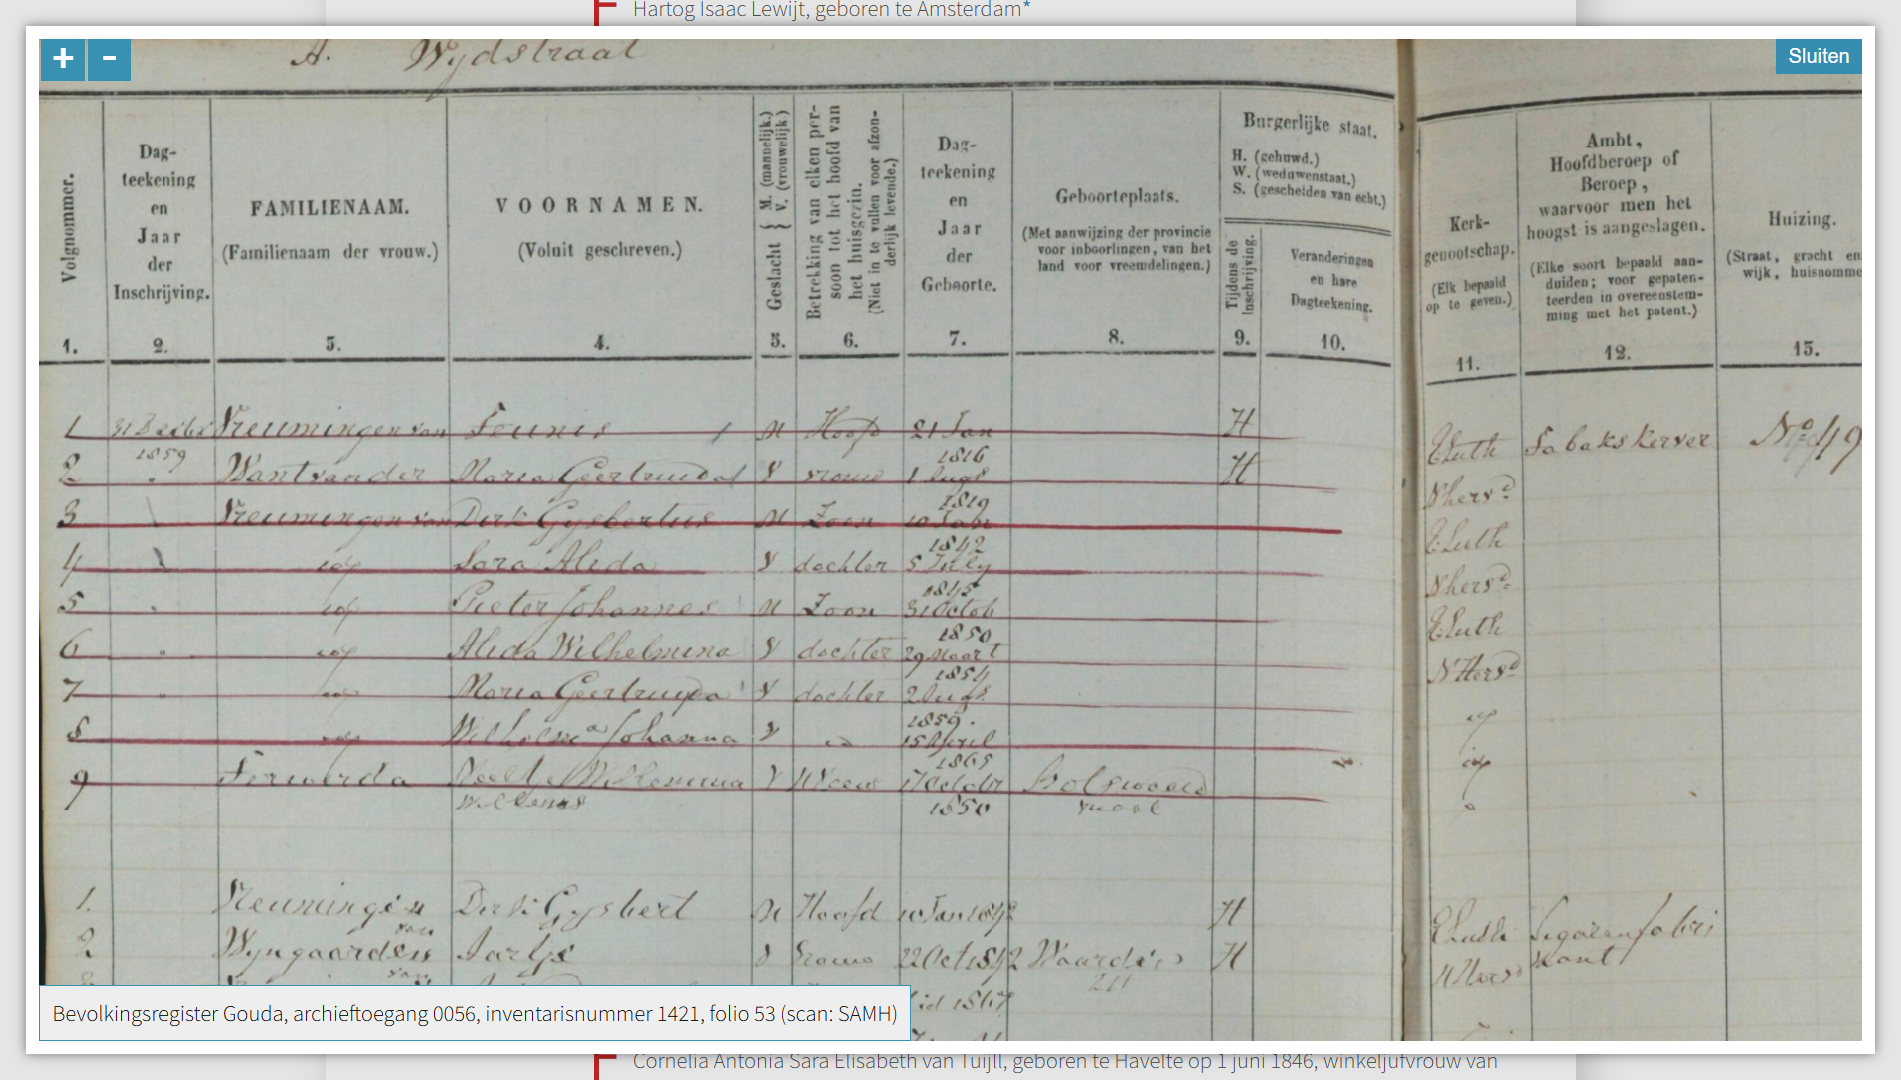 Hartog Isaac Lewijt, geboren te Amsterdam*
+ -
Sluiten
A. Wydstraat
Volgnommer.
Dag-
teekening
en
Jaar
der
Inschrijving.
FAMILIENAAM.
(Familienaam der vrouw.)
VOORNAMEN.
(Voluit geschreven.)
Geslacht { M. (mannelijk.)
V. (vrouwelijk.)
Betrekking van elken per-
soon tot het hoofd van
het huisgezin.
(Niet in te vullen voor afzon-
derlijk levende.)
Dag-
teekening
en
Jaar
der
Geboorte.
Geboorteplaats.
(Met aanwijzing der provincie
voor inboorlingen, van het
land voor vreemdelingen.)
Burgerlijke staat.
H. (gehuwd.)
W. (weduwenstaat.)
S. (gescheiden van echt.)
Tijdens de
inschrijving.
Veranderingen
en hare
Dagteekening.
Kerk-
genootschap.
(Elk bepaald
op te geven.)
Ambt,
Hoofdberoep of
Beroep,
waarvoor men het
hoogst is aangeslagen.
(Elke soort bepaald aan-
duiden; voor gepaten-
teerden in overeenstem-
ming met het patent.)
Huizing.
(Straat, gracht en
wijk, huisnomme
1. 2. 3. 4. 5. 6. 7. 8. 9. 10. 11. 12. 13.
1 31 Decbr Vreumingen van Teunis M Hoofd 21 Jan H E Luth Tabakskerver
1859 1816
2 Want van der Maria Geertruida V vrouw 1 Augs H N herv d
1819
3 Vreumingen van Dirk Gysbertus M Zoon 10 Jan E Luth
1842
4 Sara Alida V dochter 5 July N herv d
1845
5 Pieter Johannes M Zoon 31 Octob E Luth
1850
6 Alida Wilhelmina V dochter 29 Maart N Herv d
1854
7 Maria Geertruyda V dochter 2 Augs
1859.
8 Wilhelm a Johanna V 15 April
1865
9 Ferwerda Willemina V 17 Octobr Bolsward
1850
1. Vreumingen Dirk Gysbert M Hoofd 10 Jan 1842 H E Luth Sigarenfabri
van
2 Wyngaarden V Vrouw 22 Oct 1842 H N Herv kant
van
1867
Bevolkingsregister Gouda, archieftoegang 0056, inventarisnummer 1421, folio 53 (scan: SAMH)
Cornelia Antonia Sara Elisabeth van Tuijll, geboren te Havelte op 1 juni 1846, winkeljufvrouw van